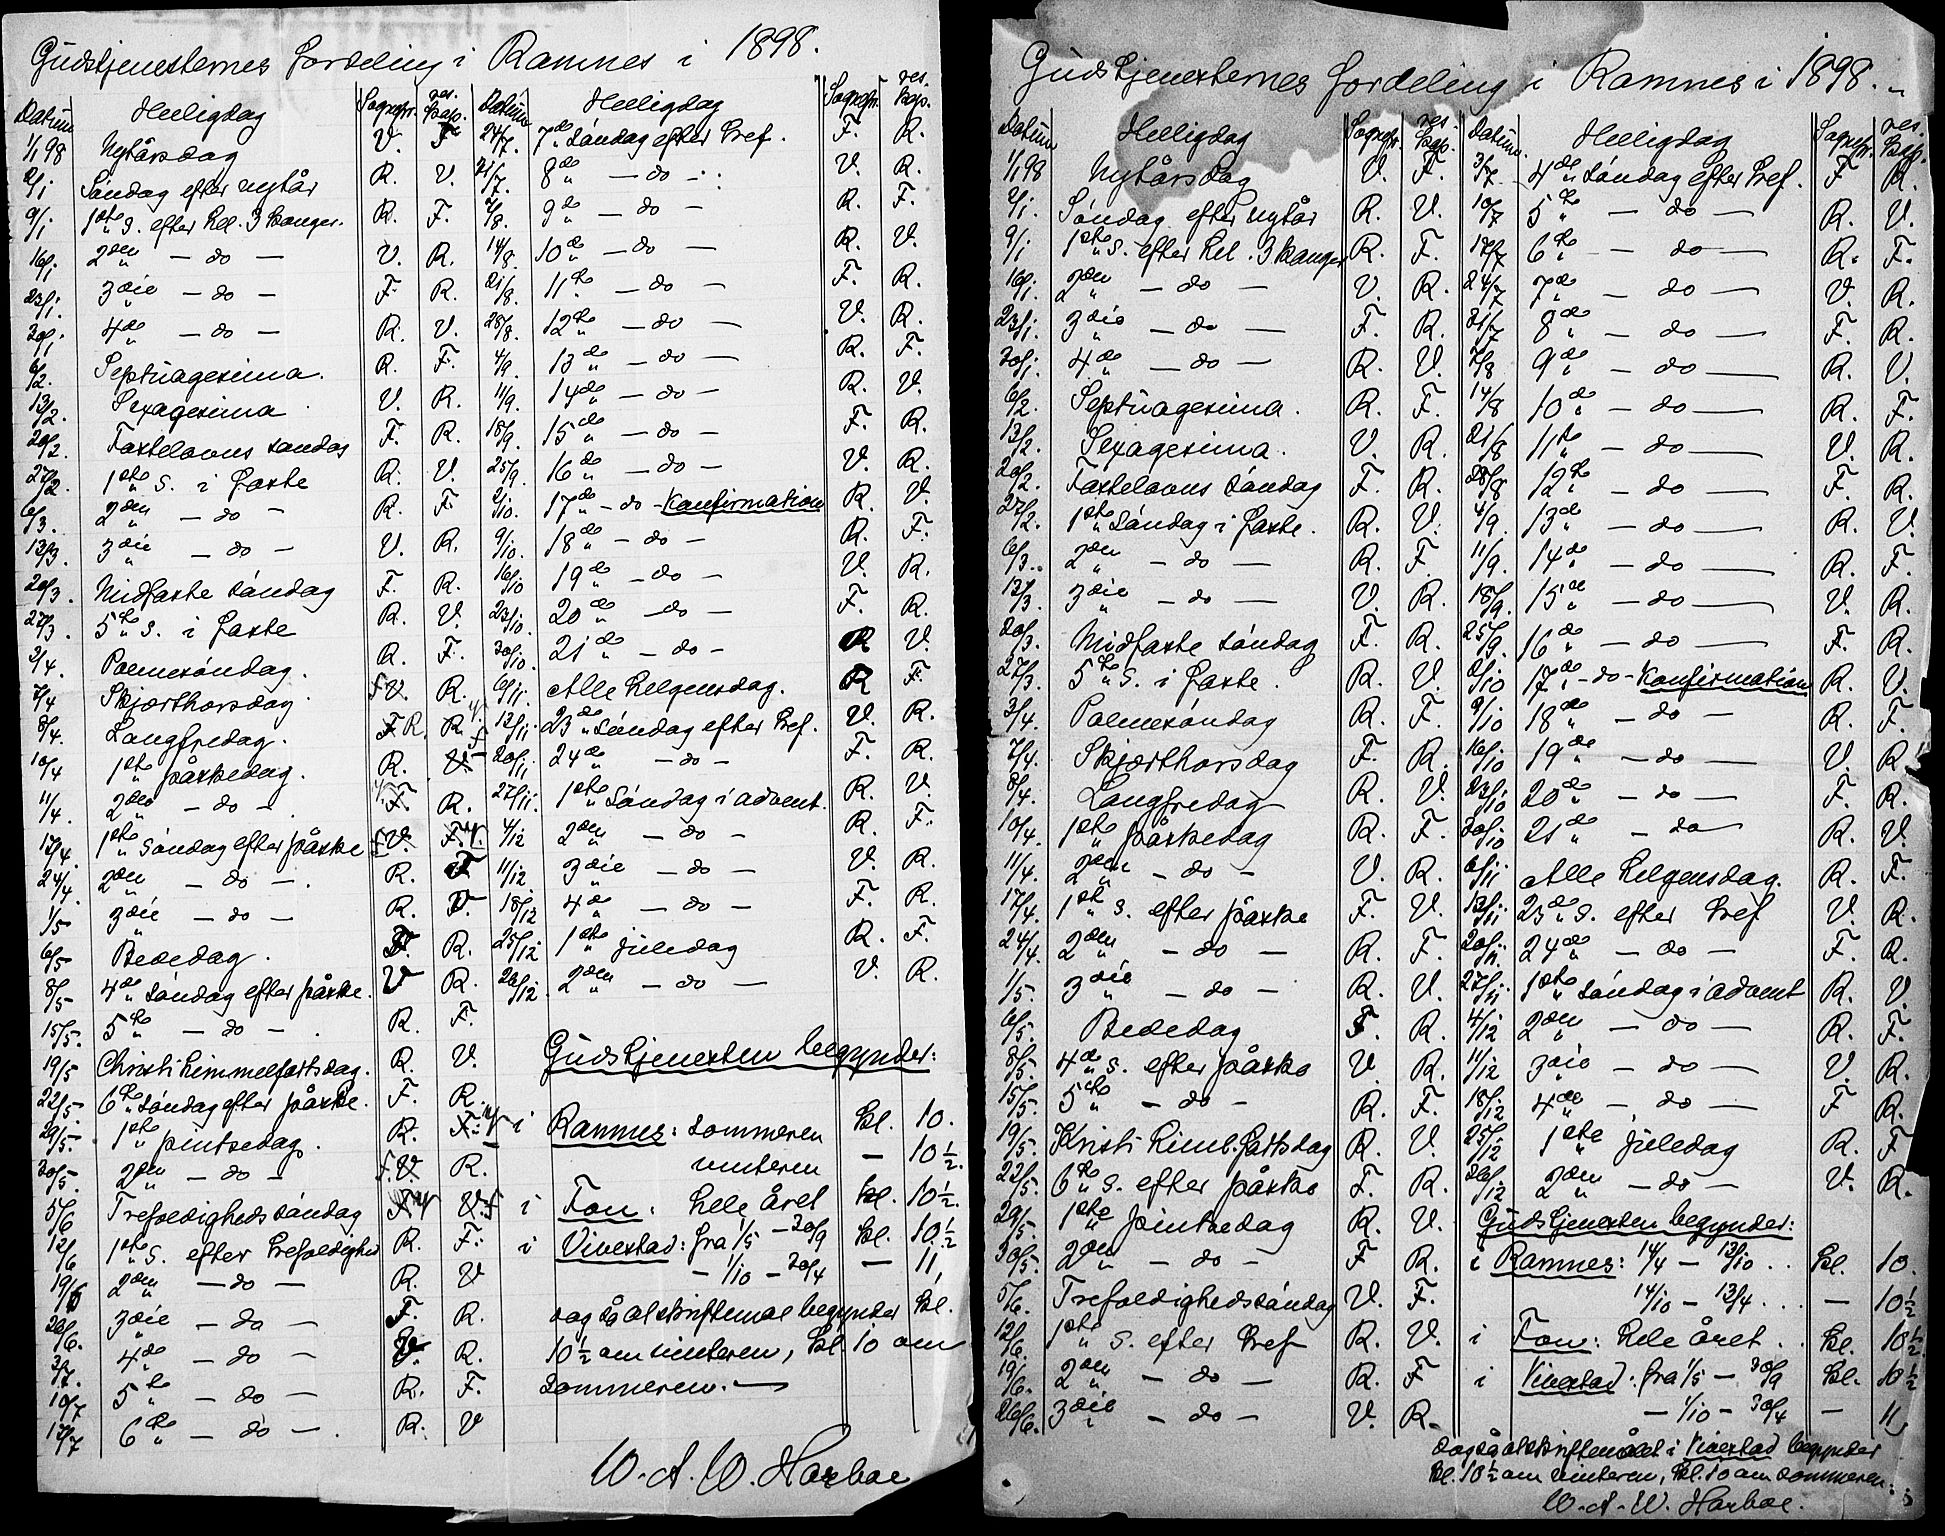 Gudstjenesternes fordeling i Ramnes i 1898.
Datum Helligdag Sognepr. res. kap.
1/1 98 Nytårsdag V. F.
2/1 Søndag efter nytår R. V.
9/1 1ste s. efter hel. 3 konger. R. F.
16/1 2den – do – V. R.
23/1 3die – do – F. R.
30/1 4de – do – R. V.
6/2. Septuagesima. R. F.
13/2. Sexagesima V. R.
20/2. Fastelavns søndag F. R.
27/2. 1ste s. i faste R. V.
6/3. 2den – do – R. F.
13/3. 3die – do – V. R.
20/3. Midfaste søndag F. R.
27/3. 5te s. i faste R. V.
3/4. Palmesøndag. R. F.
7/4 Skjærthorsdag F V. R.
8/4. Langfredag. F R. R. V.
10/4 1ste påskedag. R. V. F
11/4. 2den – do – V. F. R.
17/4. 1ste søndag efter påske F V. F. V.
24/4. 2den – do – . R. F
1/5 3die – do – R. V.
6/5 Bededag. F. R.
8/5 4de søndag efter påske. V R.
15/5. 5te – do – . R. F.
19/5 Christi himmelfartsdag. R. V.
22/5. 6te søndag efter påske. F. R.
29/5. 1ste pintsedag. R. F. V
30/5. 2den – do – F. V. R.
5/6 Trefoldighedssøndag F V V. F
12/6 1ste s. efter trefoldighed R. F.
19/6 2den – do – R. V
26/6. 3die – do – F. R.
3/7. 4de – do – V. R.
10/7 5te – do – R. F.
17/7 6te – do – . R. V
Datum Helligdag Sognepr. res. kap.
24/7. 7de søndag efter tref. F. R.
31/7. 8de – do – V. R.
7/8. 9de – do – R. F.
14/8. 10de – do – R. V.
21/8. 11te – do – F. R.
28/8. 12te – do – V. R.
4/9. 13de – do – R. F.
11/9. 14de – do – R. V.
18/9. 15de – do – F. R.
25/9. 16de – do – V. R.
2/10. 17de – do – Konfirmation R. V.
9/10. 18de – do – R. F.
16/10 19de – do – V. R.
23/10. 20de – do – F. R.
30/10. 21de – do – R V.
6/11. Alle helgensdag. R F.
13/11 23de søndag efter tref. V. R.
20/11 24de – do – F. R.
27/11. 1ste søndag i advent. R V.
4/12 2den – do – R. F.
11/12 3die – do – V. R.
18/12 4de – do – F. R.
25/12 1ste juledag R. F.
26/12. 2den – do – V. R.
Gudstjenesten begynder:
i Ramnes: sommeren kl. 10.
vinteren – 10 1/2.
i Fon: hele året kl. 10 1/2.
i Vivestad: fra 1/5 – 30/9 kl. 10 1/2
– 1/10 – 30/4 – 11,
dog så at skriftemål begynder kl.
10 1/2 om vinteren, kl. 10 om
sommeren. –
W. A. W. Harboe
Gudstjenesternes fordeling i Ramnes i 1898.
Datum Helligdag Sognepr. res. kap.
1/1 98 Nytårsdag V. F.
2/1. Søndag efter nytår R. V.
9/1 1ste s. efter hel. 3 konger R. F.
16/1. 2den – do – V. R.
23/1. 3die – do – F. R.
30/1. 4de – do – R. V.
6/2. Septuagesima. R. F.
13/2. Sexagesima. V. R.
20/2. Fastelavns søndag F. R.
27/2. 1ste søndag i faste. R. V.
6/3. 2den – do – R. F.
13/3. 3die – do – V. R.
20/3. Midfaste søndag F. R.
27/3. 5te s. i faste. R. V.
3/4. Palmesøndag R. F.
7/4. Skjærthorsdag F. R.
8/4. Langfredag R. V.
10/4. 1ste påskedag R. F.
11/4. 2den – do – V. R.
17/4. 1ste s. efter påske F. V.
24/4. 2den – do – R. F.
1/5. 3die – do – R. V.
6/5. Bededag F. R.
8/5. 4de s. efter påske V. R.
15/5. 5te – do – R. F.
19/5. Kristi himl.fartsdag R. V.
22/5. 6te s. efter påske F. R.
29/5. 1ste pintsedag R. V.
30/5. 2den – do – F R.
5/6. Trefoldighedssøndag V. F.
12/6. 1ste s. efter tref R. V.
19/6. 2den – do – R. F
26/6. 3die – do – V. R.
Datum. Helligdag Sognepr. res. kap.
3/7 4de søndag efter tref. F R.
10/7 5te – do – R. V.
17/7 6te – do – R. F.
24/7 7de – do – V. R.
31/7 8de – do – F. R.
7/8 9de – do – R. V.
14/8 10de – do – R. F.
21/8 11te – do – V. R.
28/8 12te – do – F. R.
4/9. 13de – do – R. V.
11/9. 14de – do – R. F.
18/9. 15de – do – V. R.
25/9. 16de – do – F. R.
2/10 17de – do – Konfirmation R. V.
9/10 18de – do – R. F.
16/10 19de – do – V. R
23/10 20de – do – F. R.
30/10 21de – do R. V.
6/11 Alle helgensdag. R. F.
13/11 23de s. efter tref V. R.
20/11. 24de – do – F. R.
27/11. 1ste søndag i advent R. V.
4/12 2den – do – R. F.
11/12 3die – do – V. R.
18/12 4de – do – F R.
25/12 1ste juledag R. F
26/12 2den – do – V. R.
Gudstjenesten begynder:
i Ramnes: 14/4 – 13/10 . . kl. 10.
14/10 – 13/4 . . . – 10 1/2
i Fon: hele året . . kl. 10 1/2.
i Vivestad: fra 1/5 – 30/9 kl. 10 1/2
– 1/10 – 30/4 – 11,
dog så at skriftemålet i Vivestad begynder
kl. 10 1/2 om vinteren, kl. 10 om sommeren.
W. A. W. Harboe.